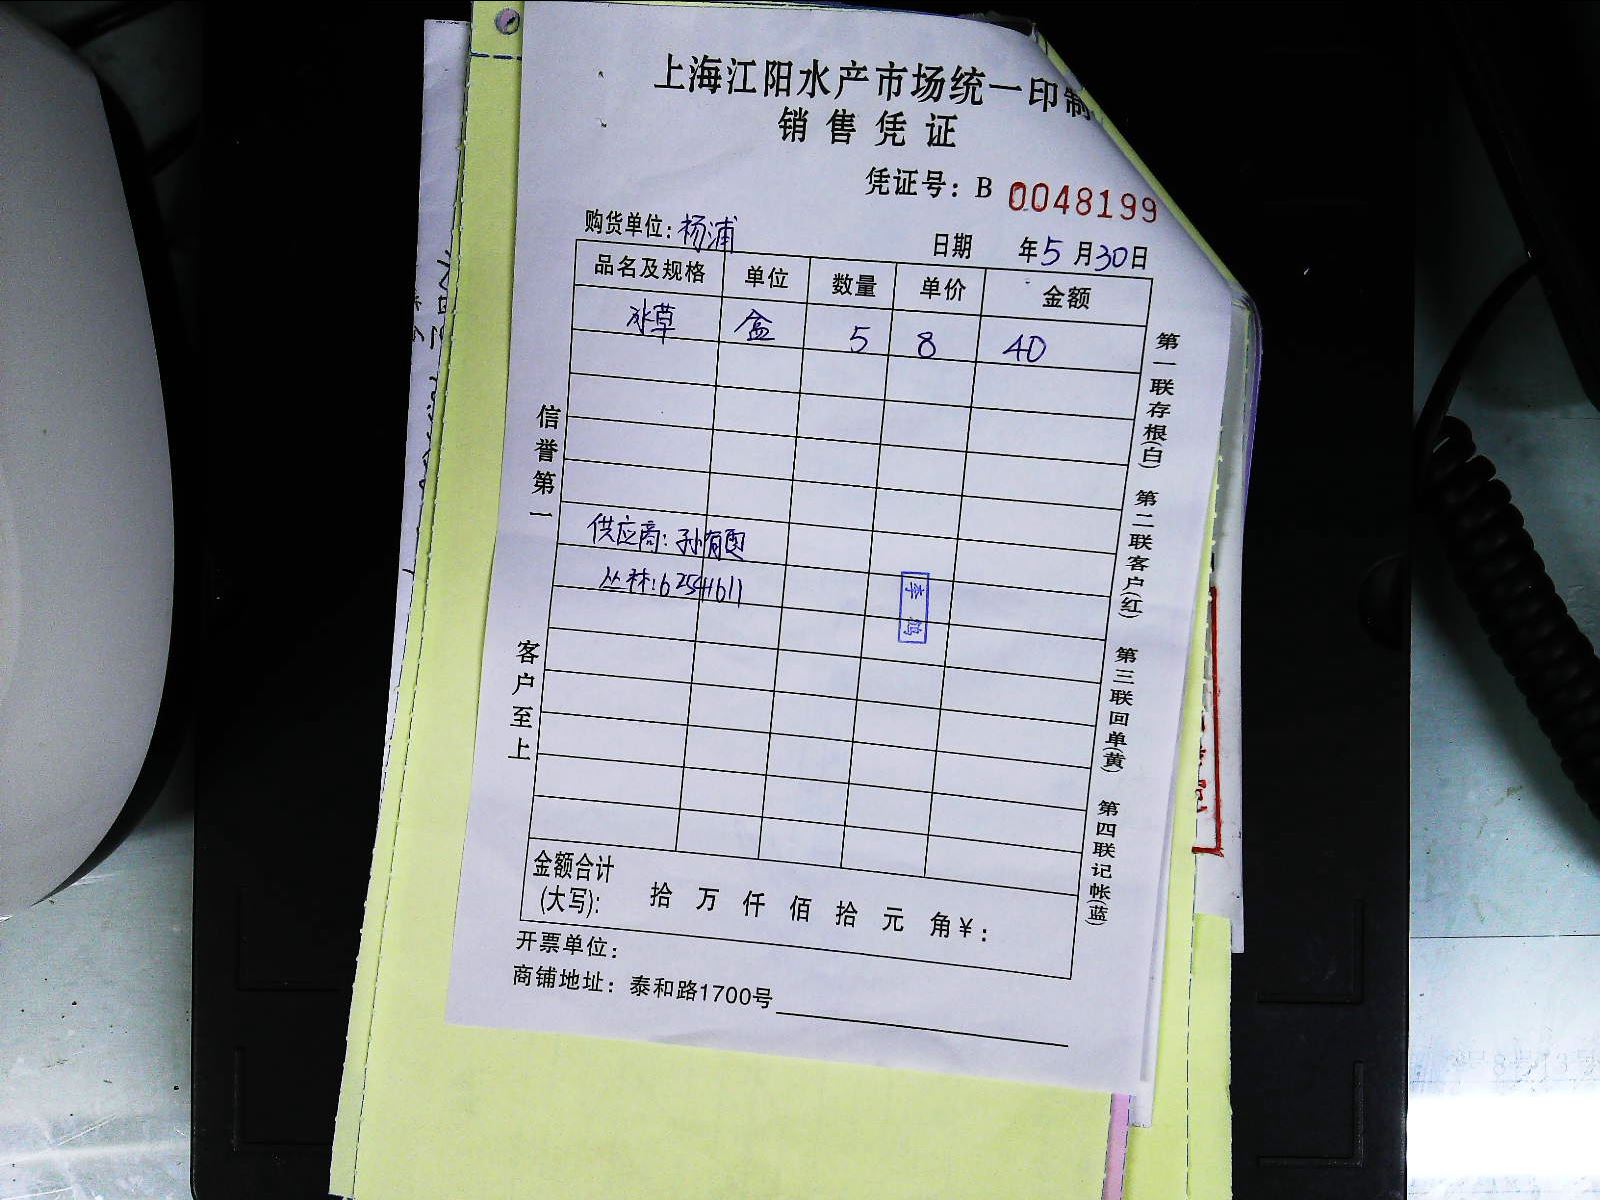 上海江阳水产市场统一印制
销售凭证
凭证号: B 0048199
购货单位: 杨浦 日期 年5月30日
品名及规格 单位 数量 单价 金额
冰草 盒 5 8 40
供应商: 孙有国
丛林: 62541611
李鸿
信誉第一
客户至上
第一联存根(白) 第二联客户(红) 第三联回单(黄) 第四联记帐(蓝)
金额合计
(大写): 拾 万 仟 佰 拾 元 角 ¥:
开票单位:
商铺地址: 泰和路1700号